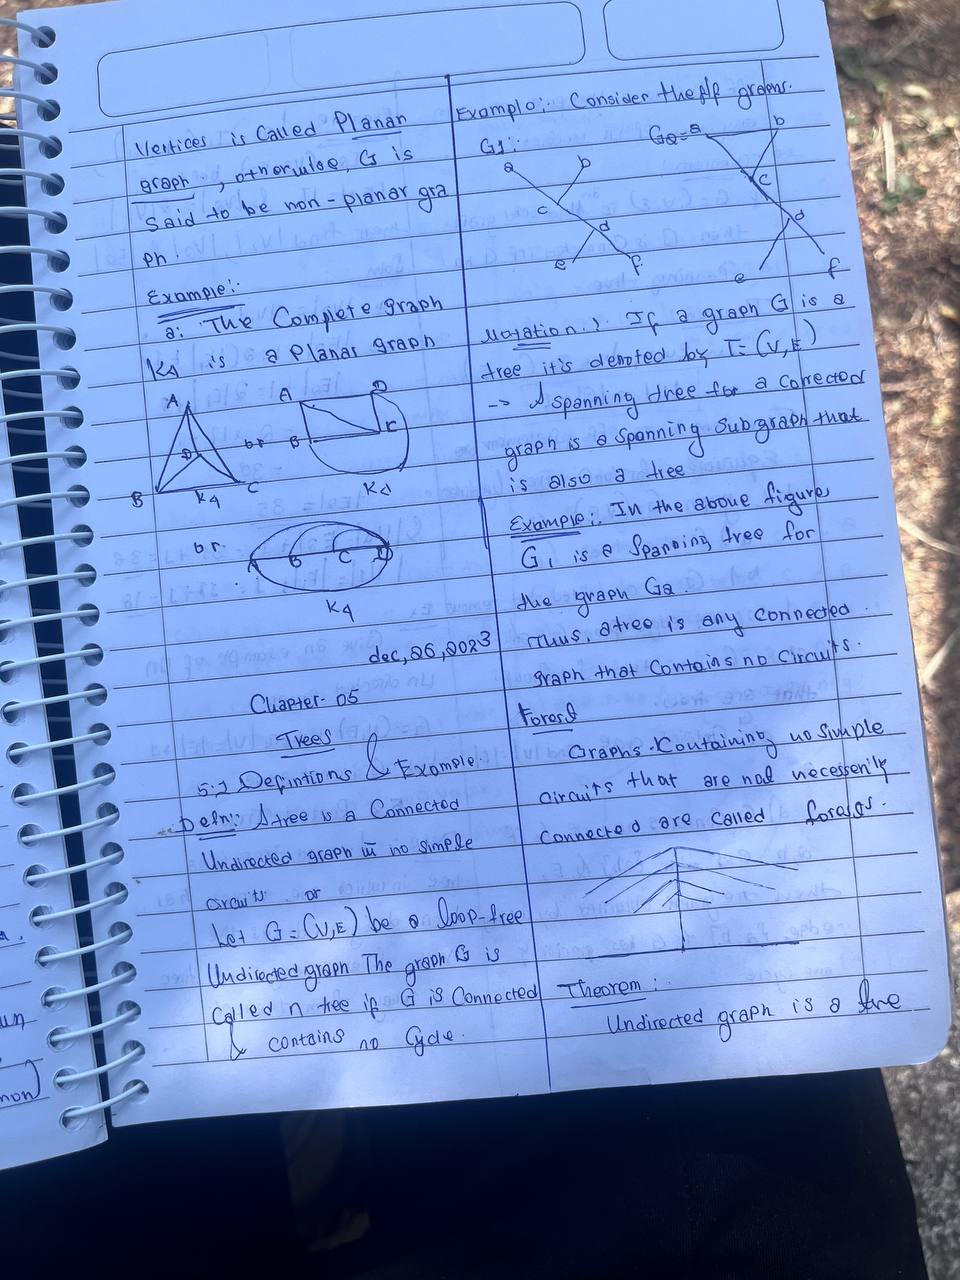 Vertices is Called Planar
graph, otherwise, G is
Said to be non-planar gra
ph.
Example:-
a: The Complete graph
K4 is a Planar graph
A
D
B
C
K4
or
A
D
B
C
K4
or
A
B
C
D
K4
dec, 26, 2023
Chapter-05
Trees
5.1 Defintions & Example.
Defn: A tree is a Connected
Undirected graph w no simple
circuits. or
Let G = (V,E) be a loop-free
Undirected graph The graph G is
Called n tree if G is Connected
& contains no Cycle.
Example:- Consider the f/f graphs.
G1:
a
b
c
d
e
f
G2=
a
b
c
d
e
f
Notation:, If a graph G is a
tree it's denoted by T= (V,E)
-> A spanning tree for a conected
graph is a spanning Subgraph that
is also a tree
Example:. In the above figure,
G1 is a Spanning tree for
the graph G2.
Thus, a tree is any connected
graph that Contains no Circuits.
Forest
Graphs Containing no simple
circuits that are not necesserily
Connected are called forests.
Theorem:
Undirected graph is a tree
un
non)